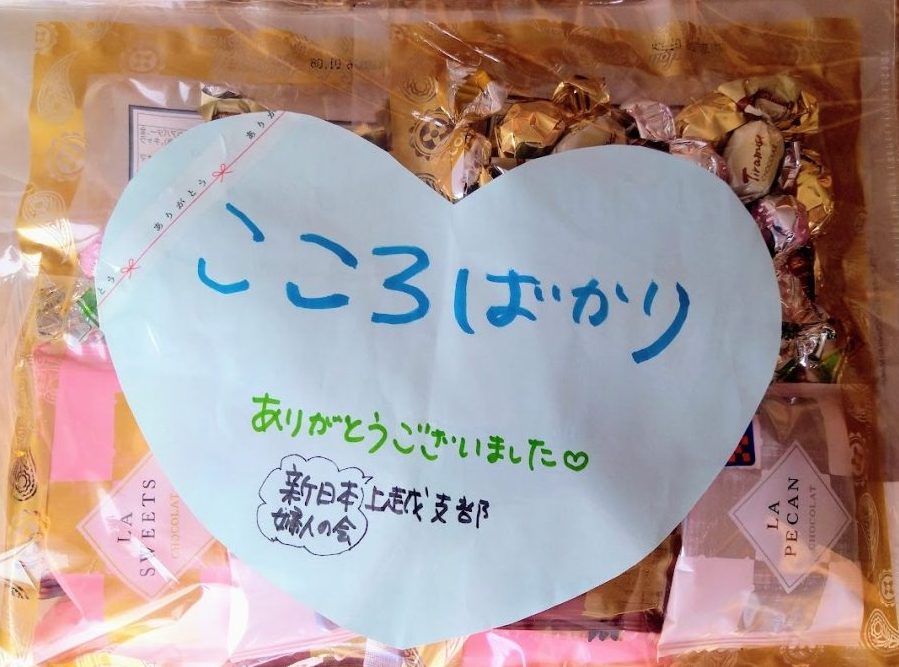 ありがとう
こころばかり
ありがとうございました♡
新日本婦人の会 上越支部
LA SWEETS
CHOCOLAT
LA PECAN
CHOCOLAT